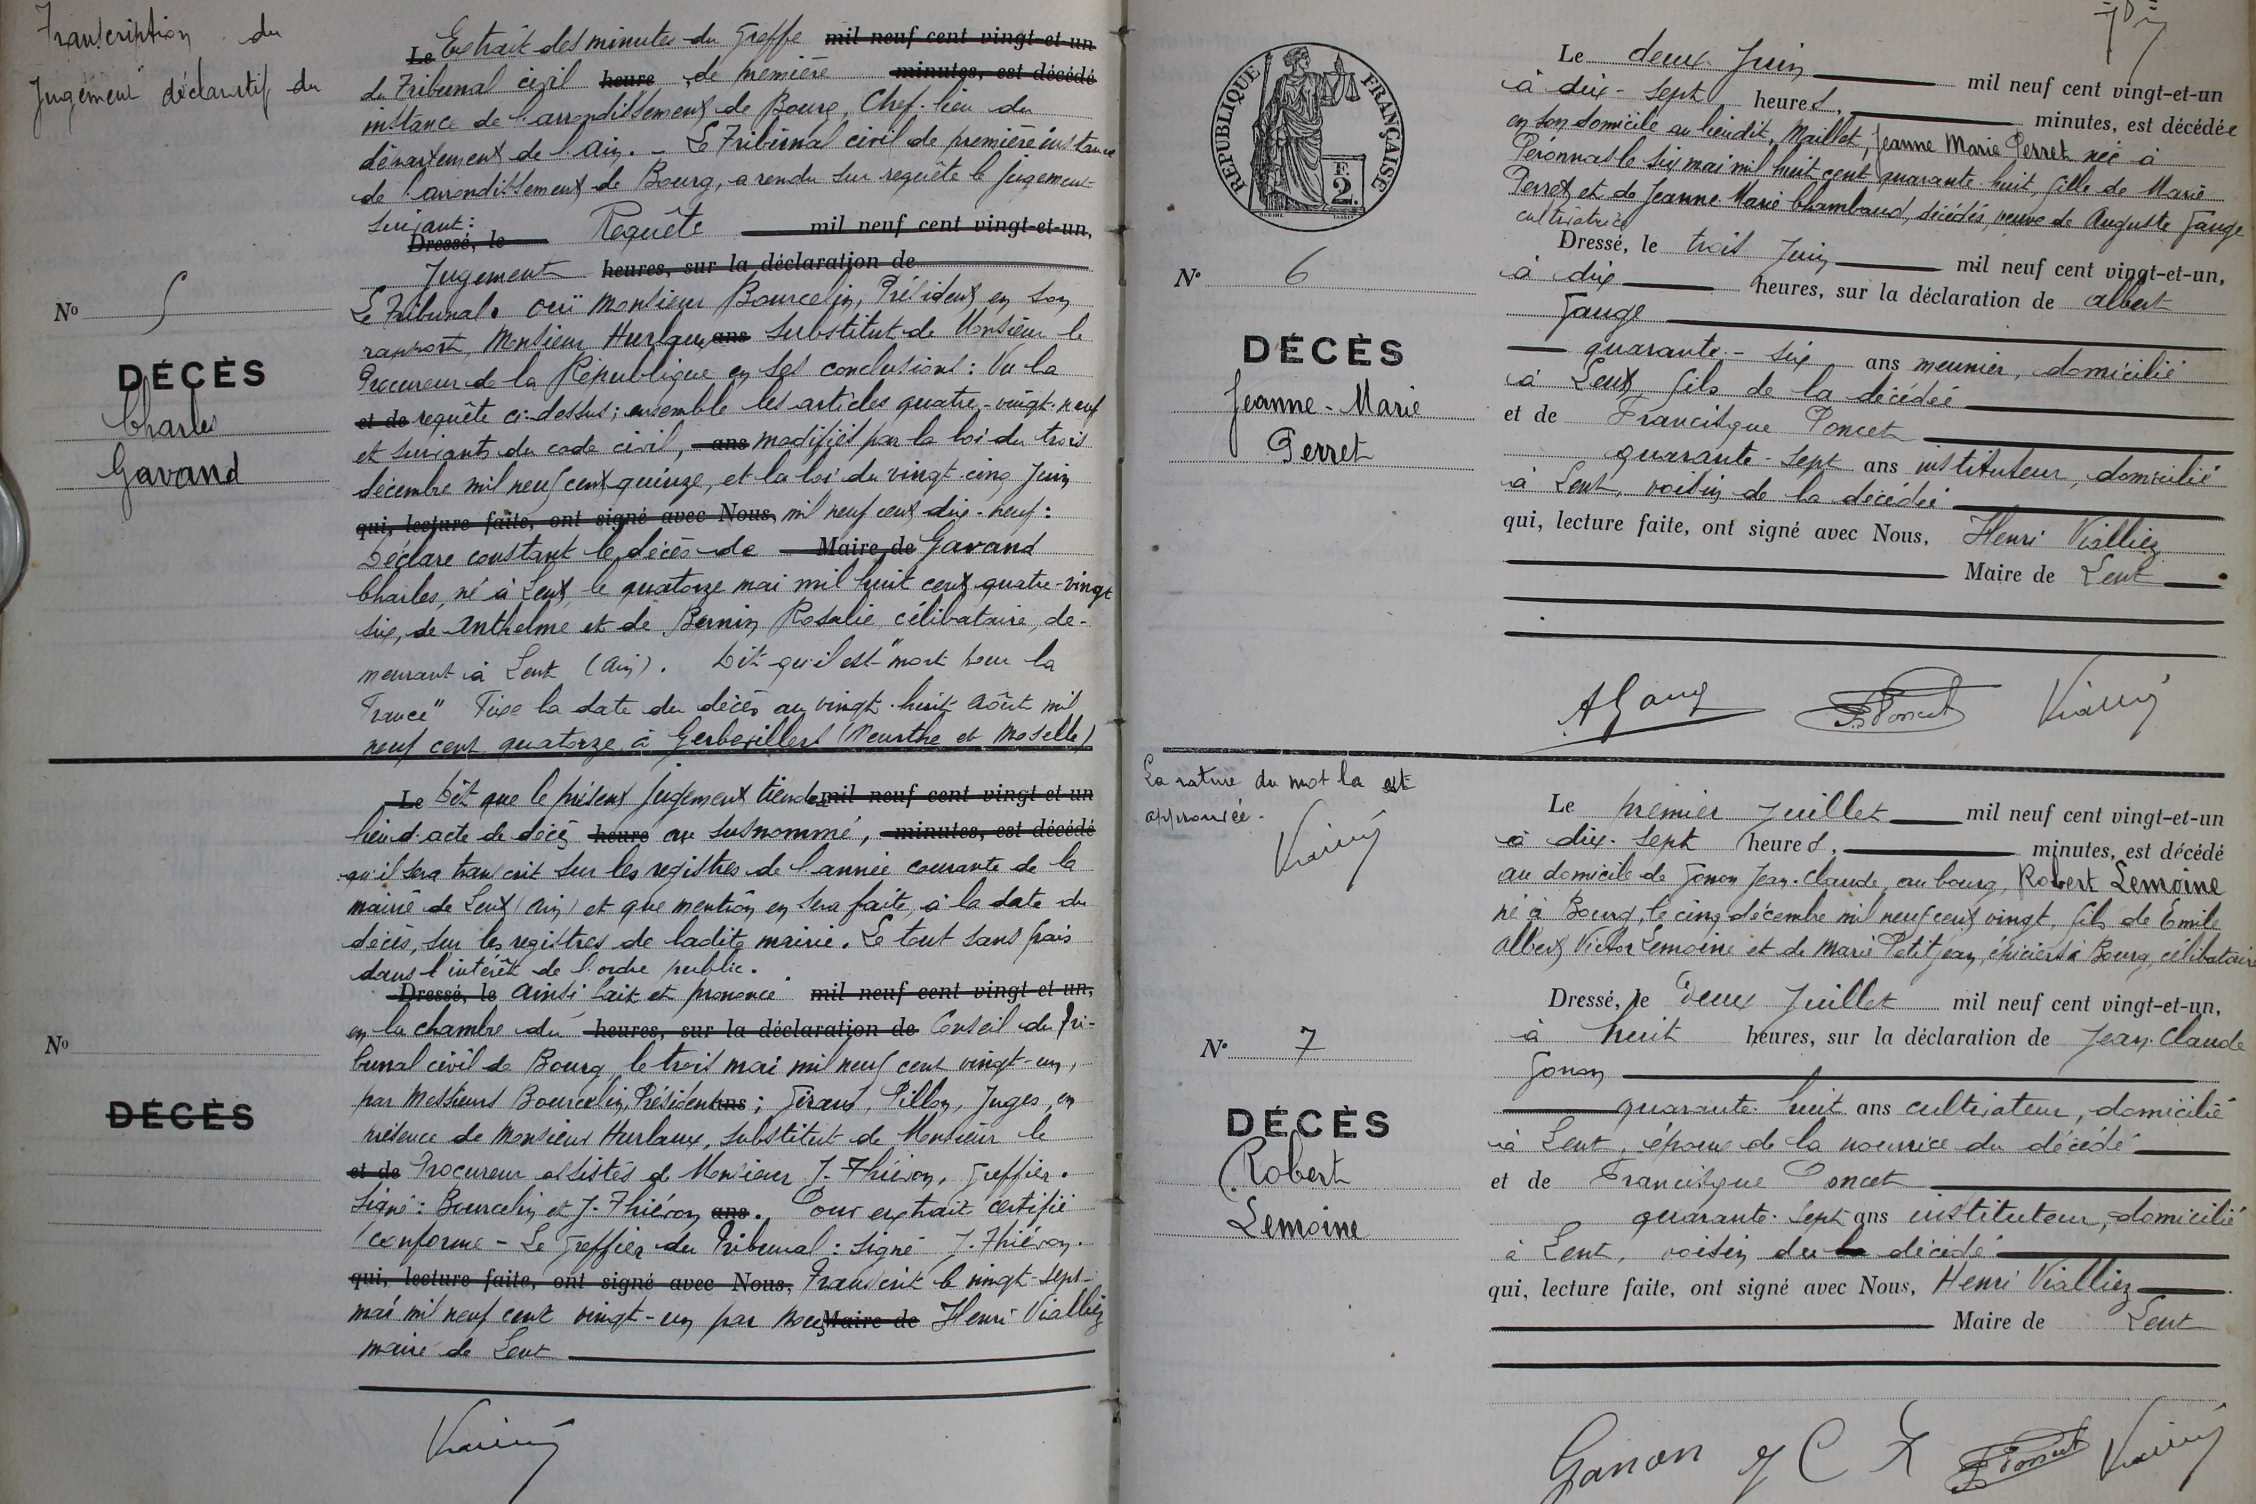 Transcription du
Jugement déclaratif du
No 5
DÉCÈS
Charles
Gavand
Le Extrait des minutes du Greffe mil neuf cent vingt-et-un
du Tribunal civil heure de première minutes, est décédé
instance de l'arrondissement de Bourg, Chef-lieu du
département de l'Ain. - Le Tribunal civil de première instance
de l'arrondissement de Bourg, a rendu sur requête le Jugement
suivant:
Dressé, le Requête mil neuf cent vingt-et-un,
Jugement heures, sur la déclaration de
Le Tribunal. ouï Monsieur Bourcelin, Président, en son
rapport, Monsieur Hurlaux ans substitut de Monsieur le
Procureur de la République en ses conclusions: Vu la
et de requête ci-dessus; ensemble les articles quatre-vingt-neuf
et suivants du code civil, ans modifiés par la loi du trois
décembre mil neuf cent quinze, et la loi du vingt-cinq Juin
qui, lecture faite, ont signé avec Nous, mil neuf cent dix-neuf:
Déclare constant le décès de Maire de Gavand
Charles, né à Lent, le quatorze mai mil huit cent quatre-vingt
six, de Anthelme et de Bernin Rosalie, célibataire, de-
meurant à Lent (Ain). Dit qu'il est "mort pour la
France" Fixe la date du décès au vingt-huit Août mil
neuf cent quatorze à Gerbevillers (Meurthe et Moselle)
No
DÉCÈS
Le Dit que le présent Jugement tiendra mil neuf cent vingt et un
lieu d'acte de décès heure au susnommé, minutes, est décédé
qu'il sera transcrit sur les registres de l'année courante de la
mairie de Lent (Ain) et que mention en sera faite, à la date du
décès, sur les registres de ladite mairie. Le tout sans frais
dans l'intérêt de l'ordre public.
Dressé, le Ainsi fait et prononcé mil neuf cent vingt-et-un,
en la chambre du heures, sur la déclaration de Conseil du Tri-
bunal civil de Bourg, le trois mai mil neuf cent vingt-un,
par Messieurs Bourcelin, Président ans; Pillon, Juges, en
présence de Monsieur Hurlaux, substitut de Monsieur le
et de Procureur assistés de Monsieur J. Thiévon, Greffier.
Signé: Bourcelin et J. Thiévon ans. Pour extrait certifié
conforme - Le Greffier du Tribunal: signé J. Thiévon.
qui, lecture faite, ont signé avec Nous, Transcrit le vingt-sept
mai mil neuf cent vingt-un par nous Maire de Henri Vialliez
maire de Lent
RÉPUBLIQUE FRANÇAISE
F.
2.
No 6
DÉCÈS
Jeanne-Marie
Perret
Le deux Juin mil neuf cent vingt-et-un
à dix-sept heures, minutes, est décédée
en son domicile au lieudit, Maillet, Jeanne Marie Perret née à
Péronnas le six mai mil huit cent quarante-huit, fille de Marie
Perret et de Jeanne-Marie Chambaud, décédés, veuve de Auguste Gauge
cultivatrice
Dressé, le trois Juin mil neuf cent vingt-et-un,
à dix heures, sur la déclaration de Albert
Gauge
quarante-six ans meunier, domicilié
à Lent, fils de la décédée
et de Francisque Poncet
quarante-sept ans instituteur, domicilié
à Lent, voisin de la décédée
qui, lecture faite, ont signé avec Nous, Henri Vialliez
Maire de Lent
La rature du mot la est
approuvée.
No 7
DÉCÈS
Robert
Lemoine
Le premier Juillet mil neuf cent vingt-et-un
à dix-sept heures, minutes, est décédé
au domicile de Gonon Jean-Claude, au bourg, Robert Lemoine
né à Bourg, le cinq décembre mil neuf cent vingt, fils de Emile
Albert, Victor Lemoine et de Marie Petitjean, épiciers à Bourg, célibataire
Dressé, le Deux Juillet mil neuf cent vingt-et-un,
à huit heures, sur la déclaration de Jean-Claude
Gonon
quarante-huit ans cultivateur, domicilié
à Lent, époux de la nourrice du décédé
et de Francisque Poncet
quarante-sept ans instituteur, domicilié
à Lent, voisin du la décédé
qui, lecture faite, ont signé avec Nous, Henri Vialliez
Maire de Lent
Ganon J C
Poncet